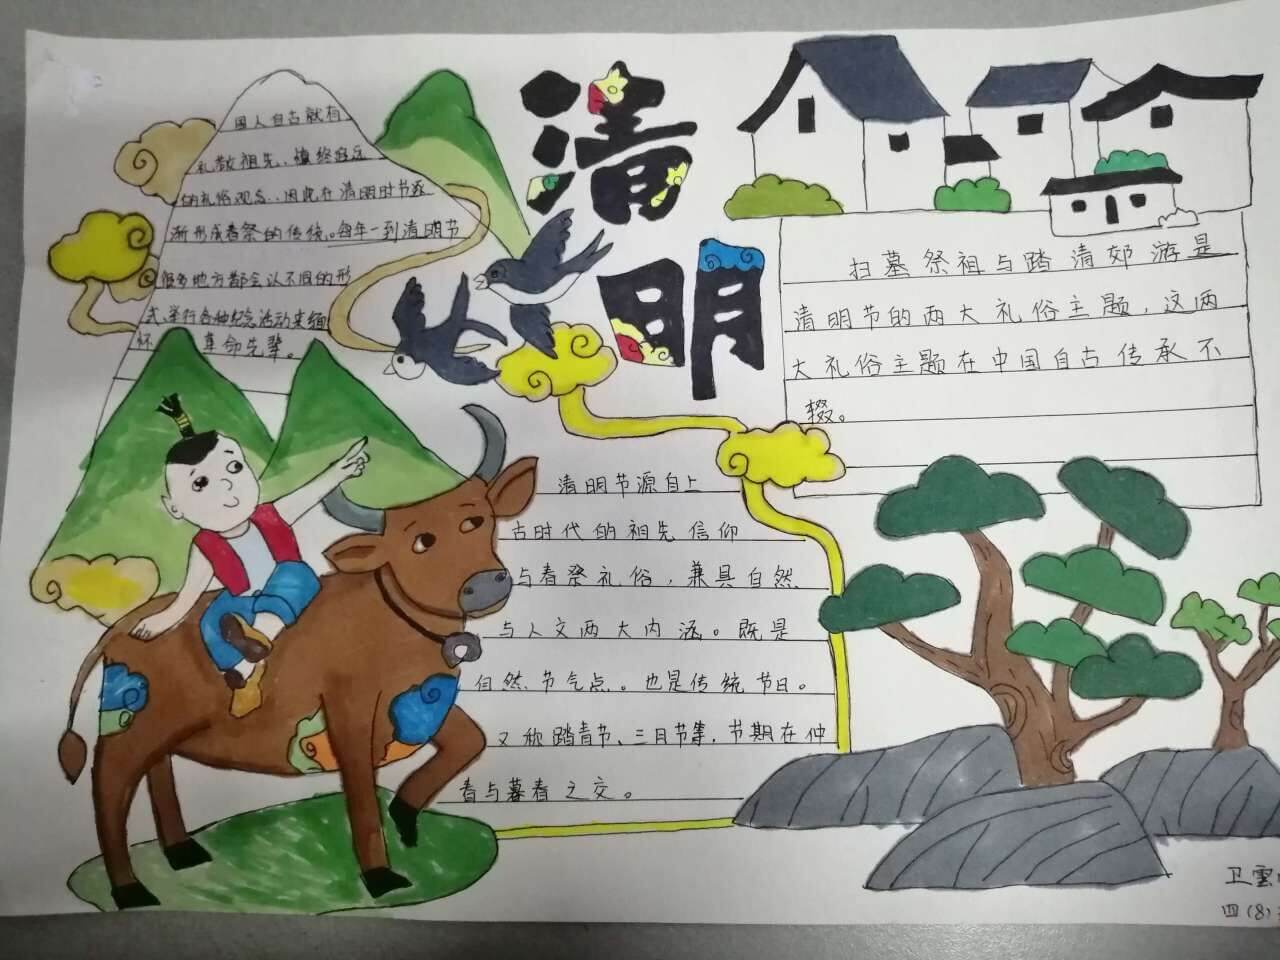 国人自古就有
礼敬祖先、慎终追远
的礼俗观念.、因此在清明时节逐
渐形成春祭的传统。每年一到清明节
很多地方都会以不同的形
式、举行各种纪念活动来缅
怀 革命先辈。
清
明
扫墓祭祖与踏清郊游是
清明节的两大礼俗主题,这两
大礼俗主题在中国自古传承不
辍。
清明节源自上
古时代的祖先信仰
与春祭礼俗,兼具自然
与人文两大内涵。既是
自然节气点。也是传统节日。
又称踏青节、三月节等,节期在仲
春与暮春之交。
卫雲
四(8)